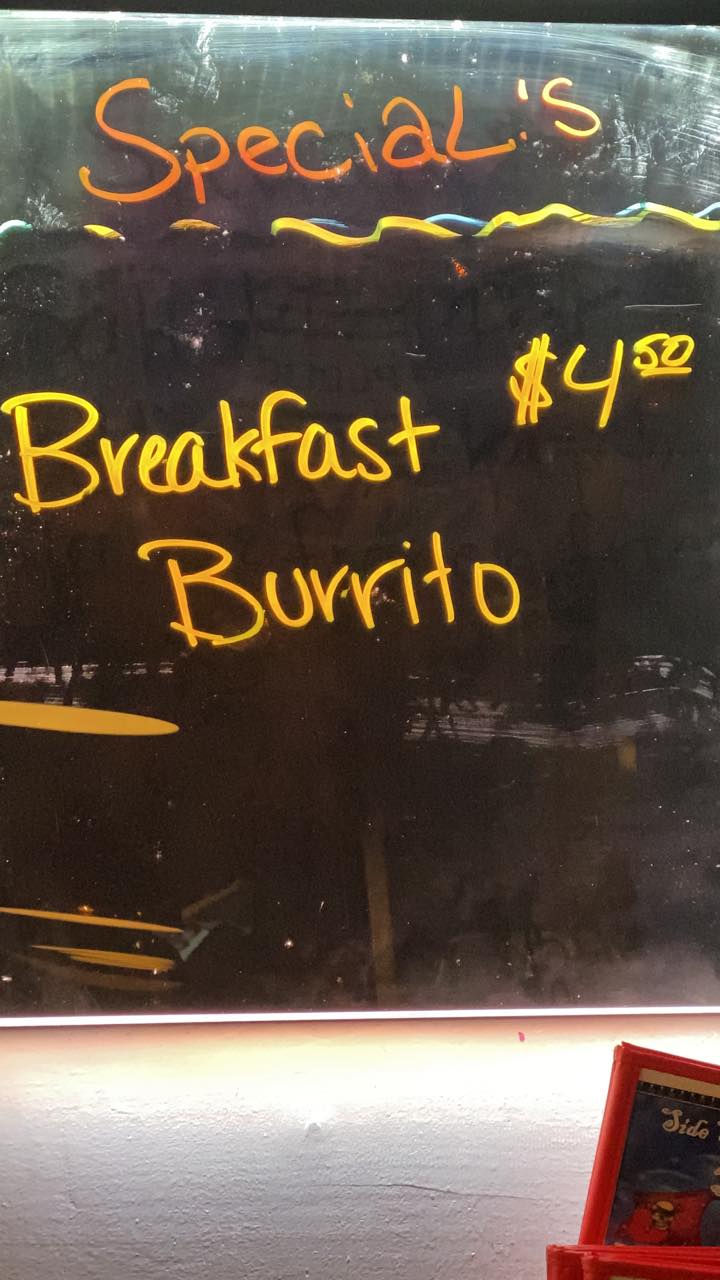 Special's
$4.50
Breakfast
Burrito
Side